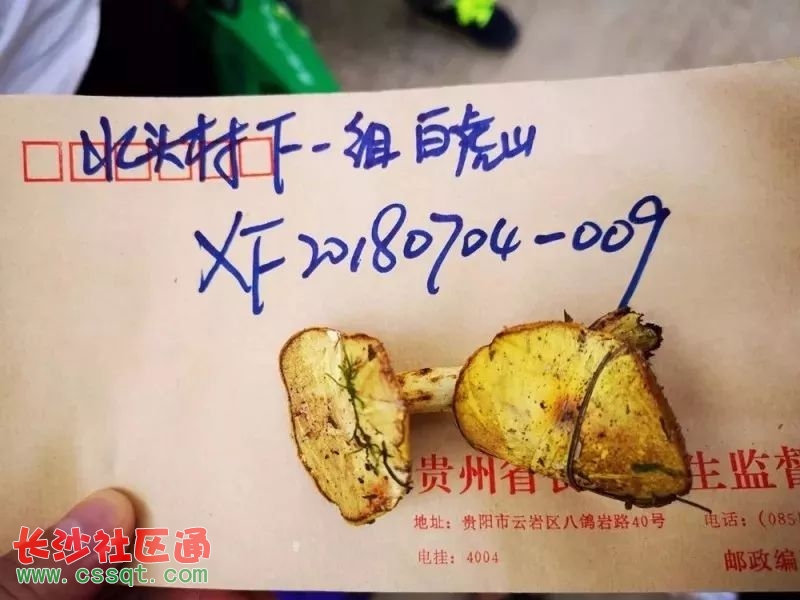 北头村下一组白虎山
XF20180704-009
贵州省 生监督
地址：贵阳市云岩区八鸽岩路40号 电话：(085
电挂：4004 邮政编
长沙社区通
www.cssqt.com